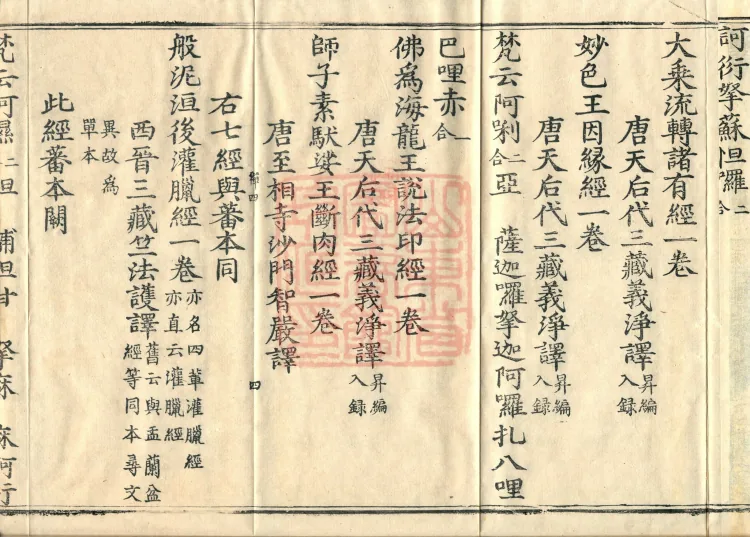 訶衍拏蘇怛囉二合
大乘流轉諸有經一卷
唐天后代三藏義淨譯昇編入録
妙色王因緣經一卷
唐天后代三藏義淨譯昇編入録
梵云阿唎二合亞 薩迦囉拏迦阿囉扎八哩
巴哩赤合一
佛爲海龍王說法印經一卷
唐天后代三藏義淨譯昇編入録
師子素馱娑王斷肉經一卷
唐至相寺沙門智嚴譯
四
右七經與蕃本同
般泥洹後灌臘經一卷亦名四輩灌臘經亦直云灌臘經
西晉三藏竺法護譯舊云與盂蘭盆經等同本尋文
異故爲單本
此經蕃本闕